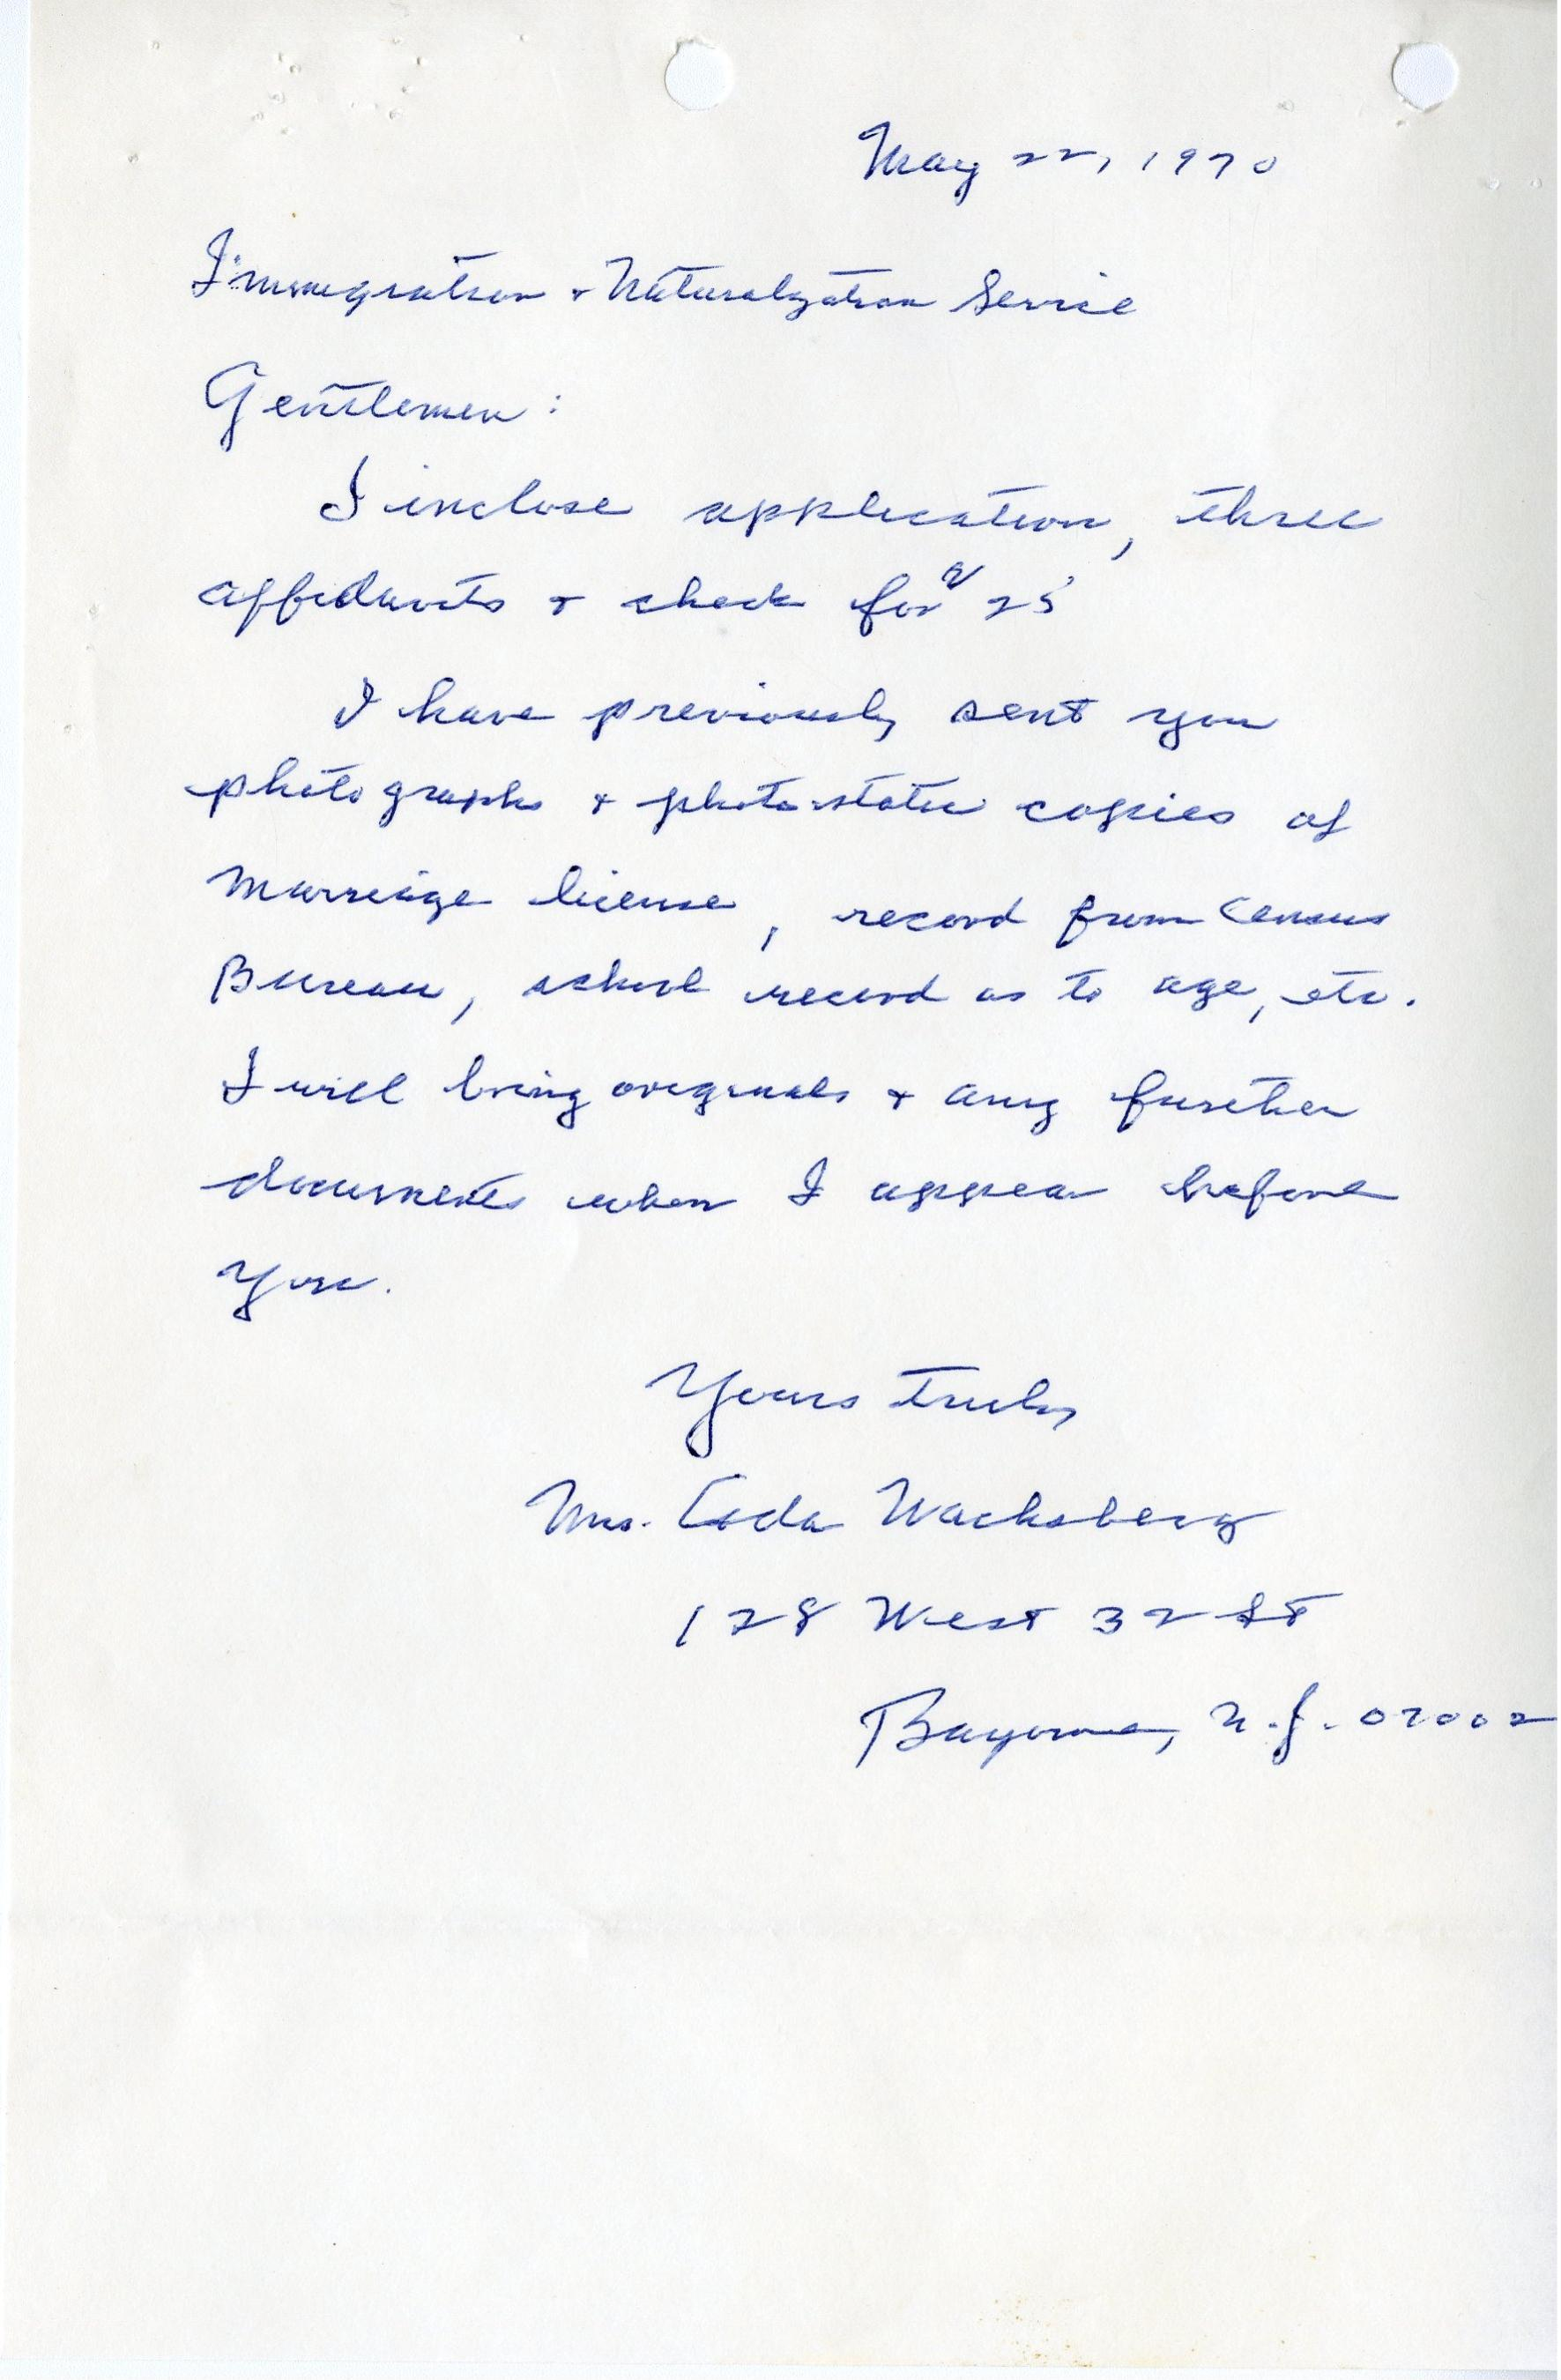 May 22, 1970
Immigration & Naturalization Service
Gentlemen:
I inclose application, three
affidavits & check for $25
I have previously sent you
photographs & photostatic copies of
Marriage license, record from Census
Bureau, school record as to age, etc.
I will bring originals & any further
documents when I appear before
you.
Yours truly,
Mrs. Wachsberg
128 West 32 St
Bayonne, N.J. 07002